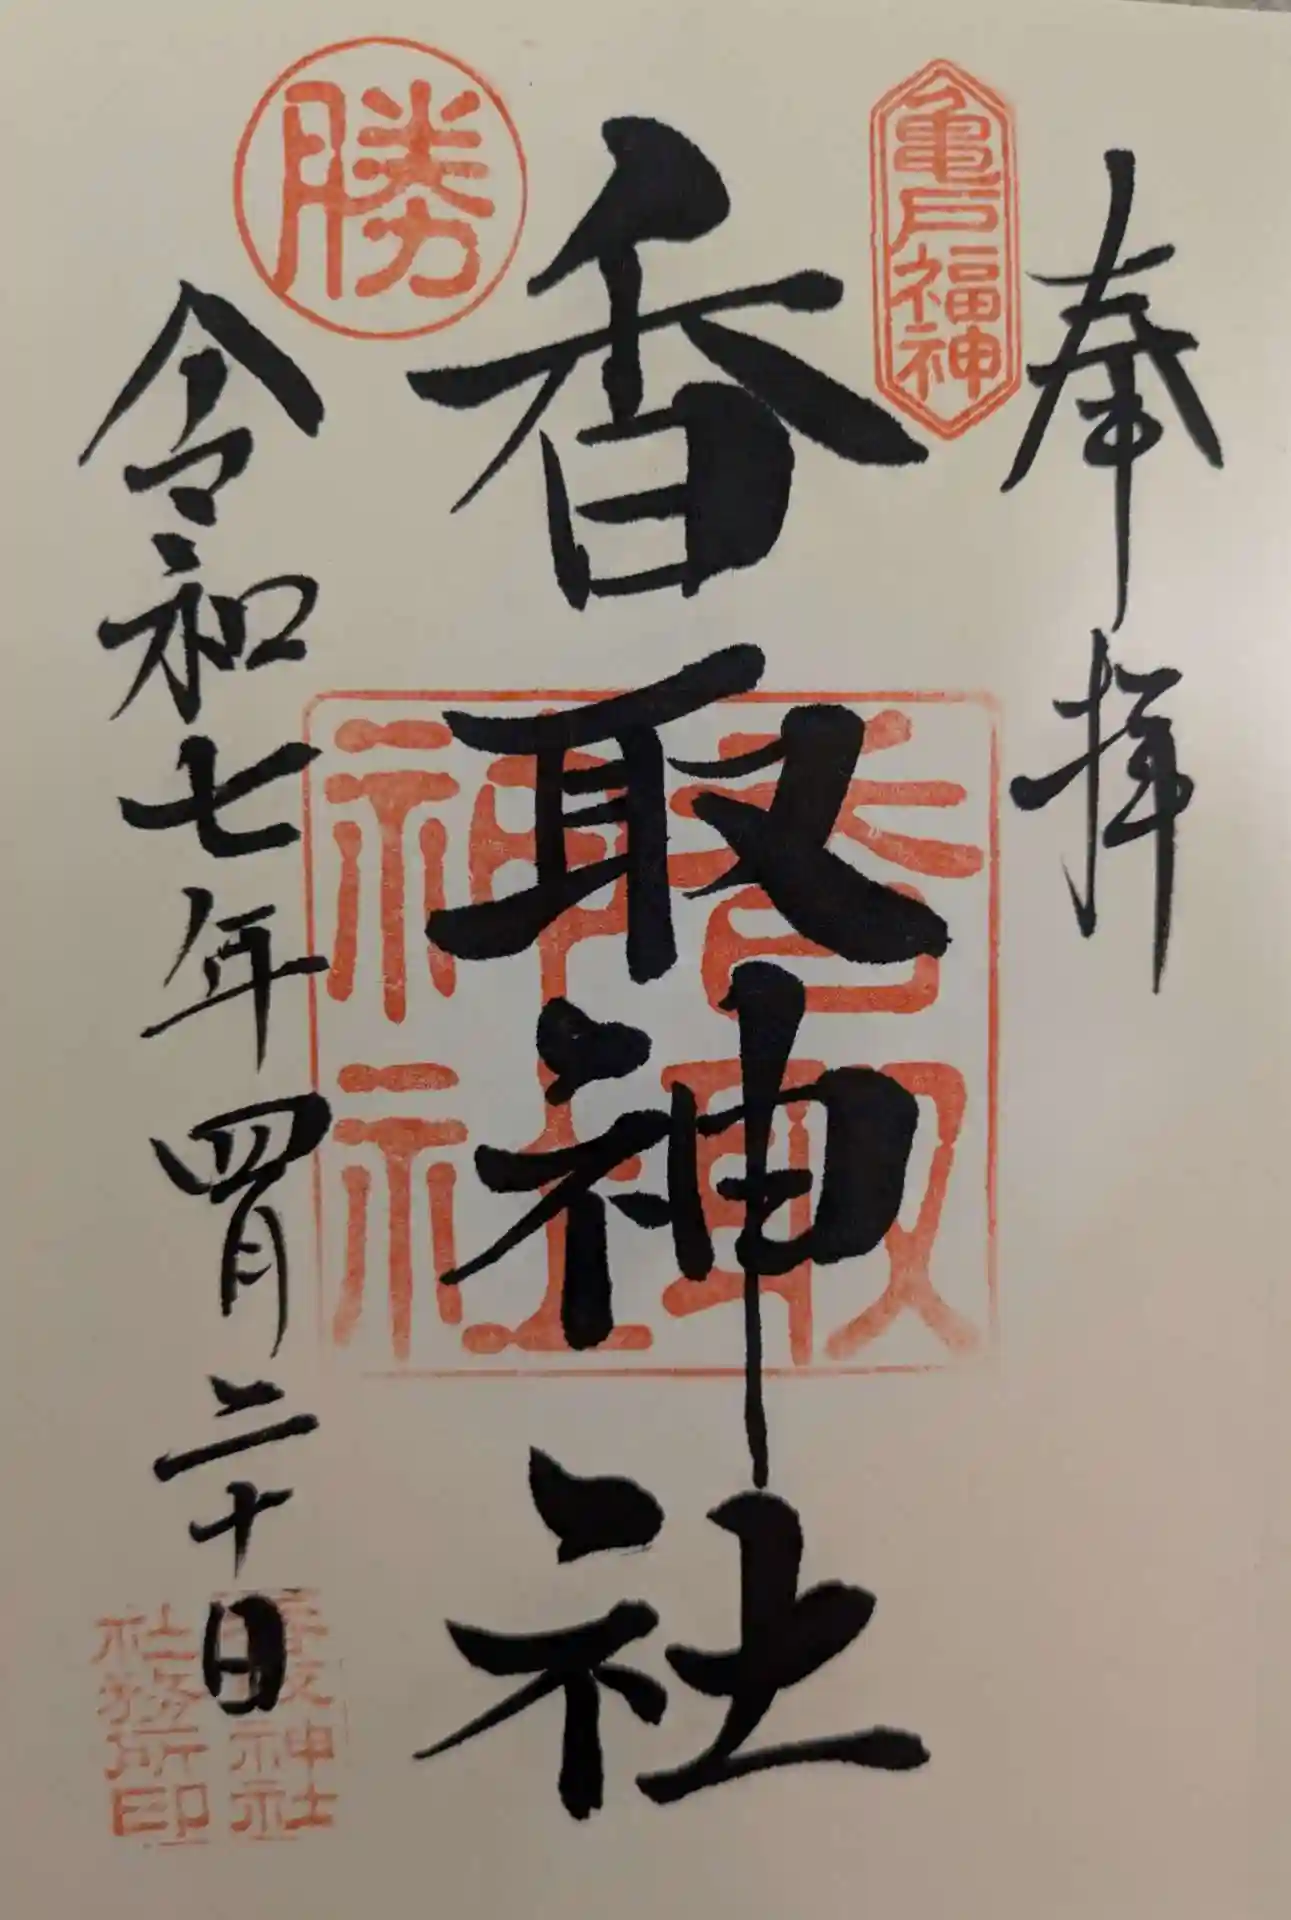 奉拝
亀戸福神
香取神社
香取
神社
勝
令和七年四月二十日
香取神社
社務所印